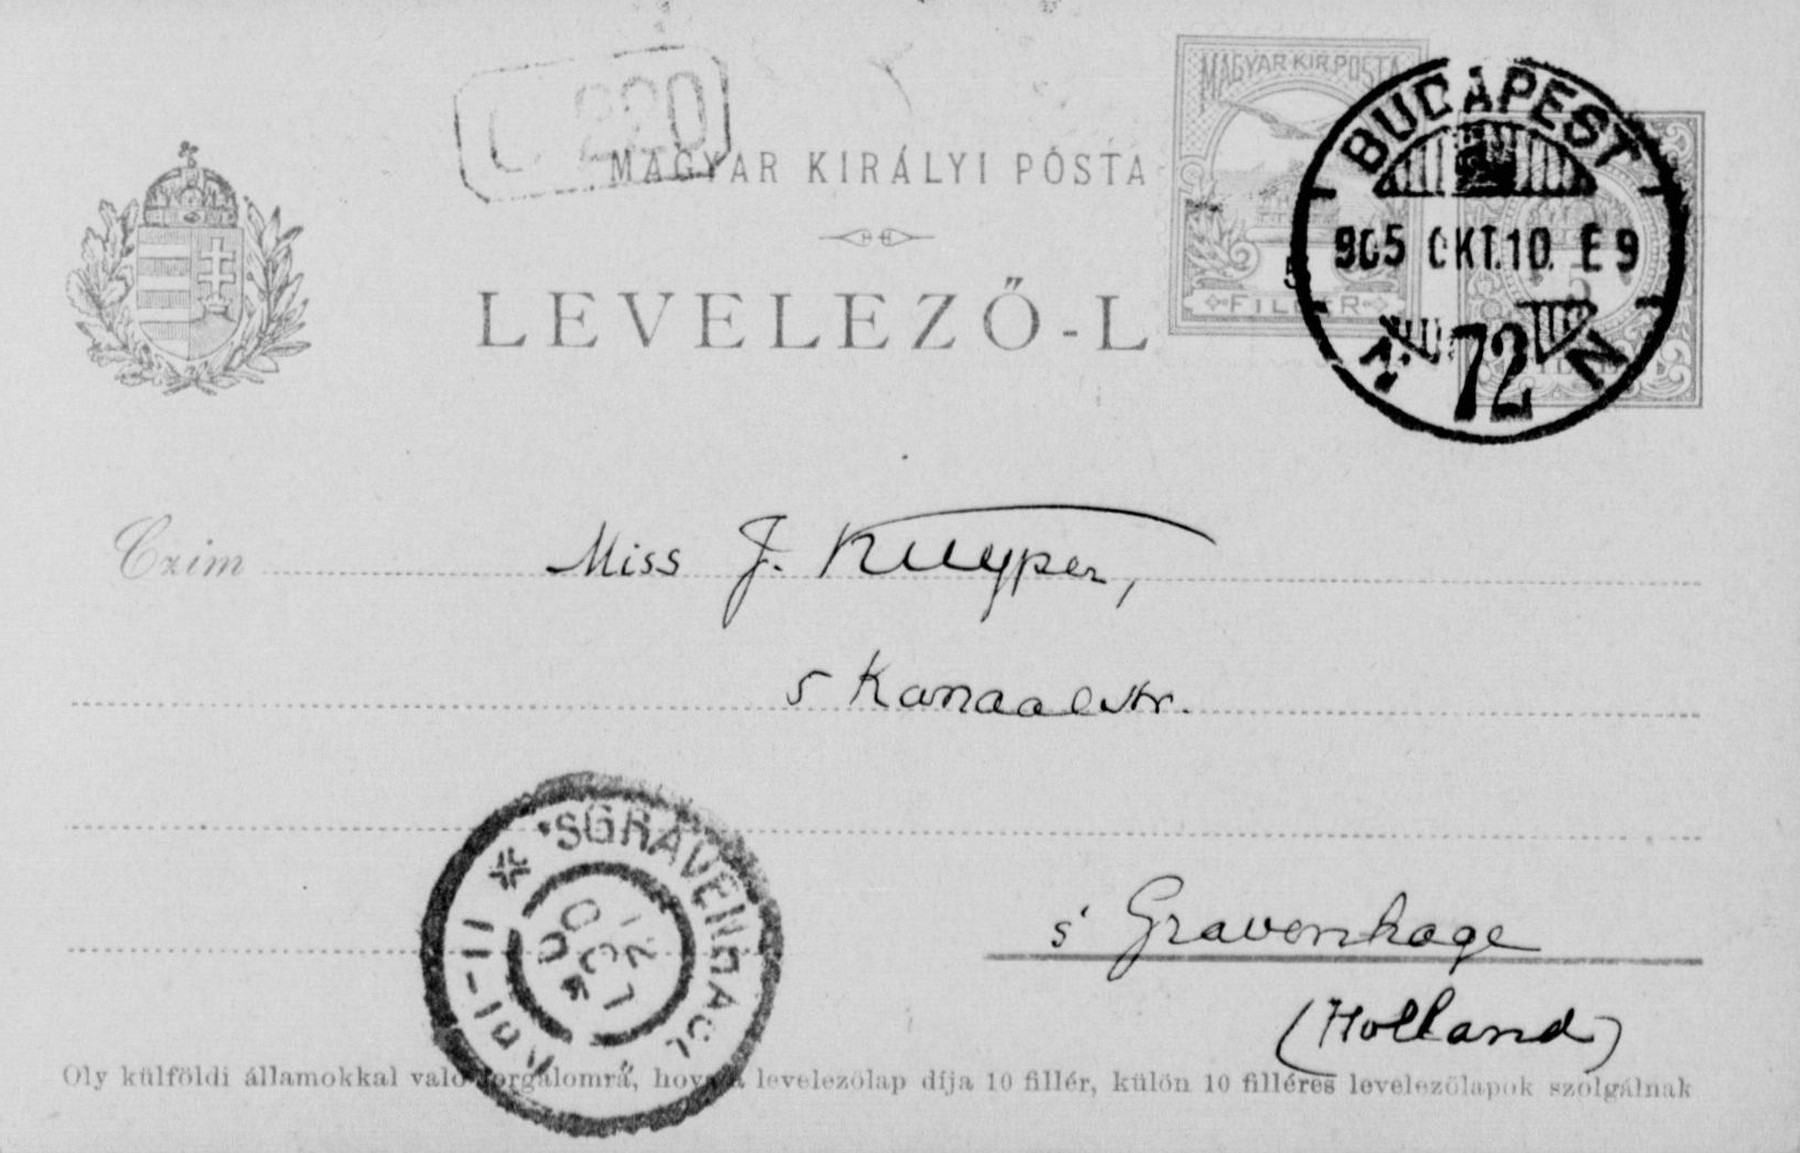 220
MAGYAR KIR. POSTA
MAGYAR KIRÁLYI POSTA
LEVELEZŐ-L
FILLÉR
BUDAPEST
905 OKT.10. E 9
N 72 N
Czim
Miss J. Kuyper,
5 Kanaalstr.
'SGRAVENHAGE
12
OCT
05
s' Gravenhage
(Holland)
Oly külföldi államokkal való forgalomra, hova a levelezőlap díja 10 fillér, külön 10 filléres levelezőlapok szolgálnak